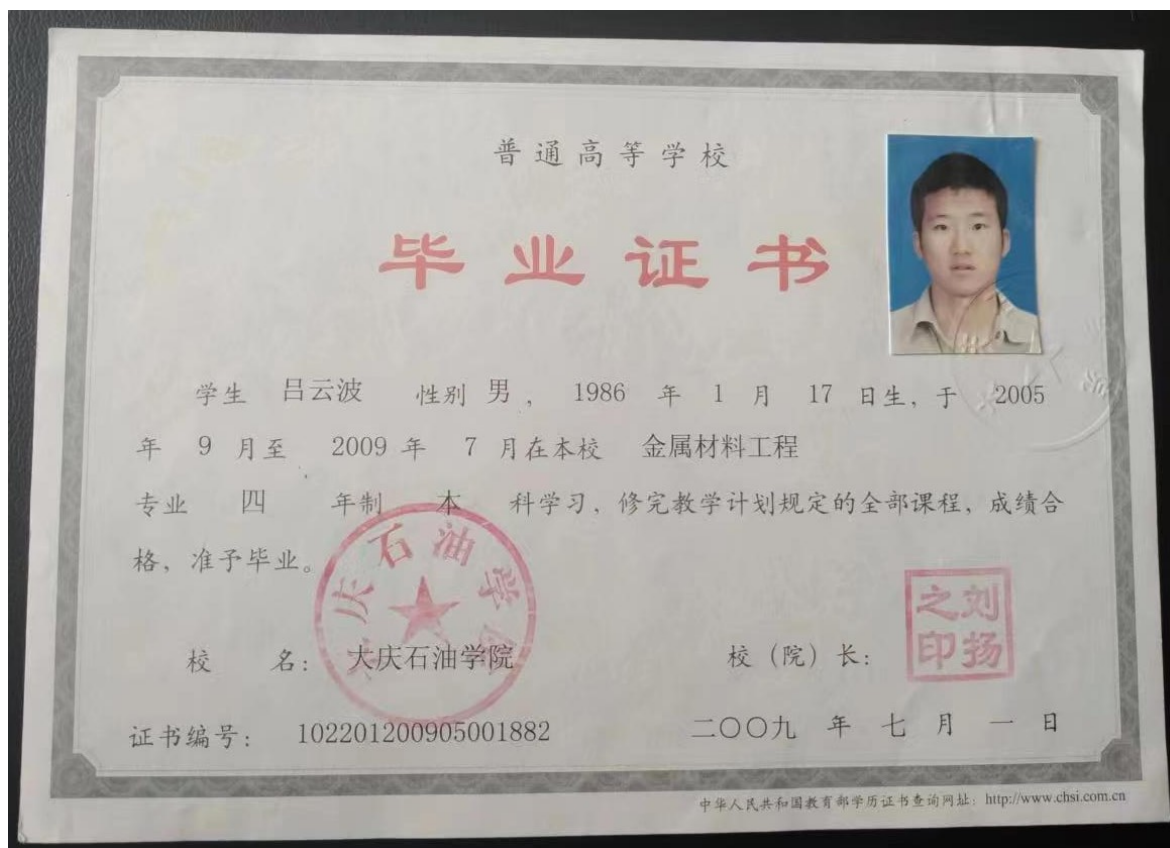 普通高等学校
毕业证书
学生 吕云波 性别 男 , 1986 年 1 月 17 日生, 于 2005
年 9 月至 2009 年 7 月在本校 金属材料工程
专业 四 年制 本 科学习, 修完教学计划规定的全部课程, 成绩合
格, 准予毕业。
大庆石油学院
校 名: 大庆石油学院
校（院）长:
刘扬之印
证书编号: 102201200905001882
二〇〇九 年 七 月 一 日
中华人民共和国教育部学历证书查询网址: http://www.chsi.com.cn